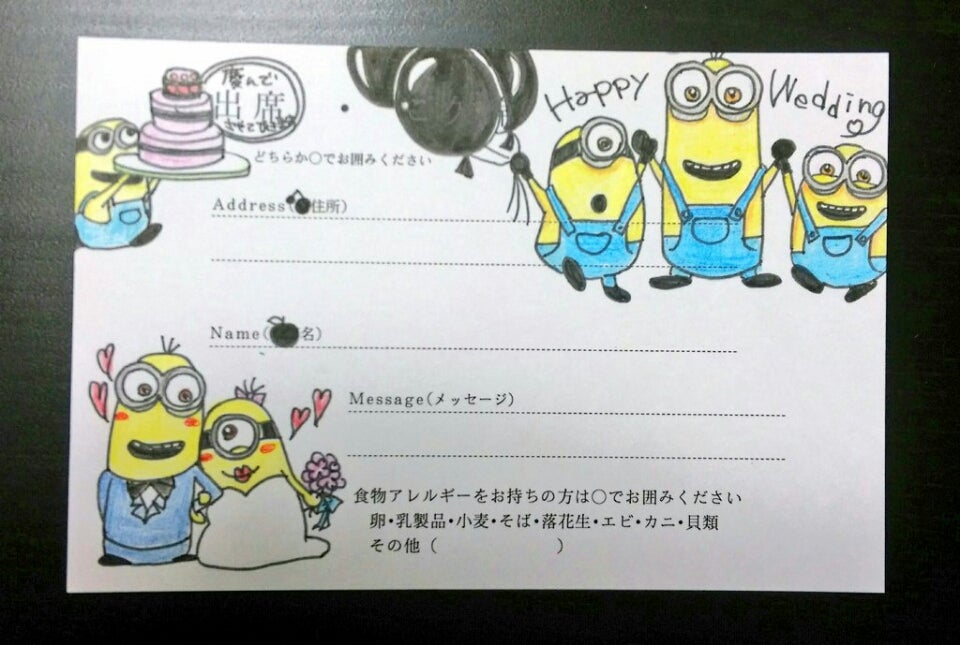 慶んで
出席
させて頂きます
・
Happy Wedding
どちらか○でお囲みください
Address(住所)
Name(名)
Message(メッセージ)
食物アレルギーをお持ちの方は○でお囲みください
卵・乳製品・小麦・そば・落花生・エビ・カニ・貝類
その他( )